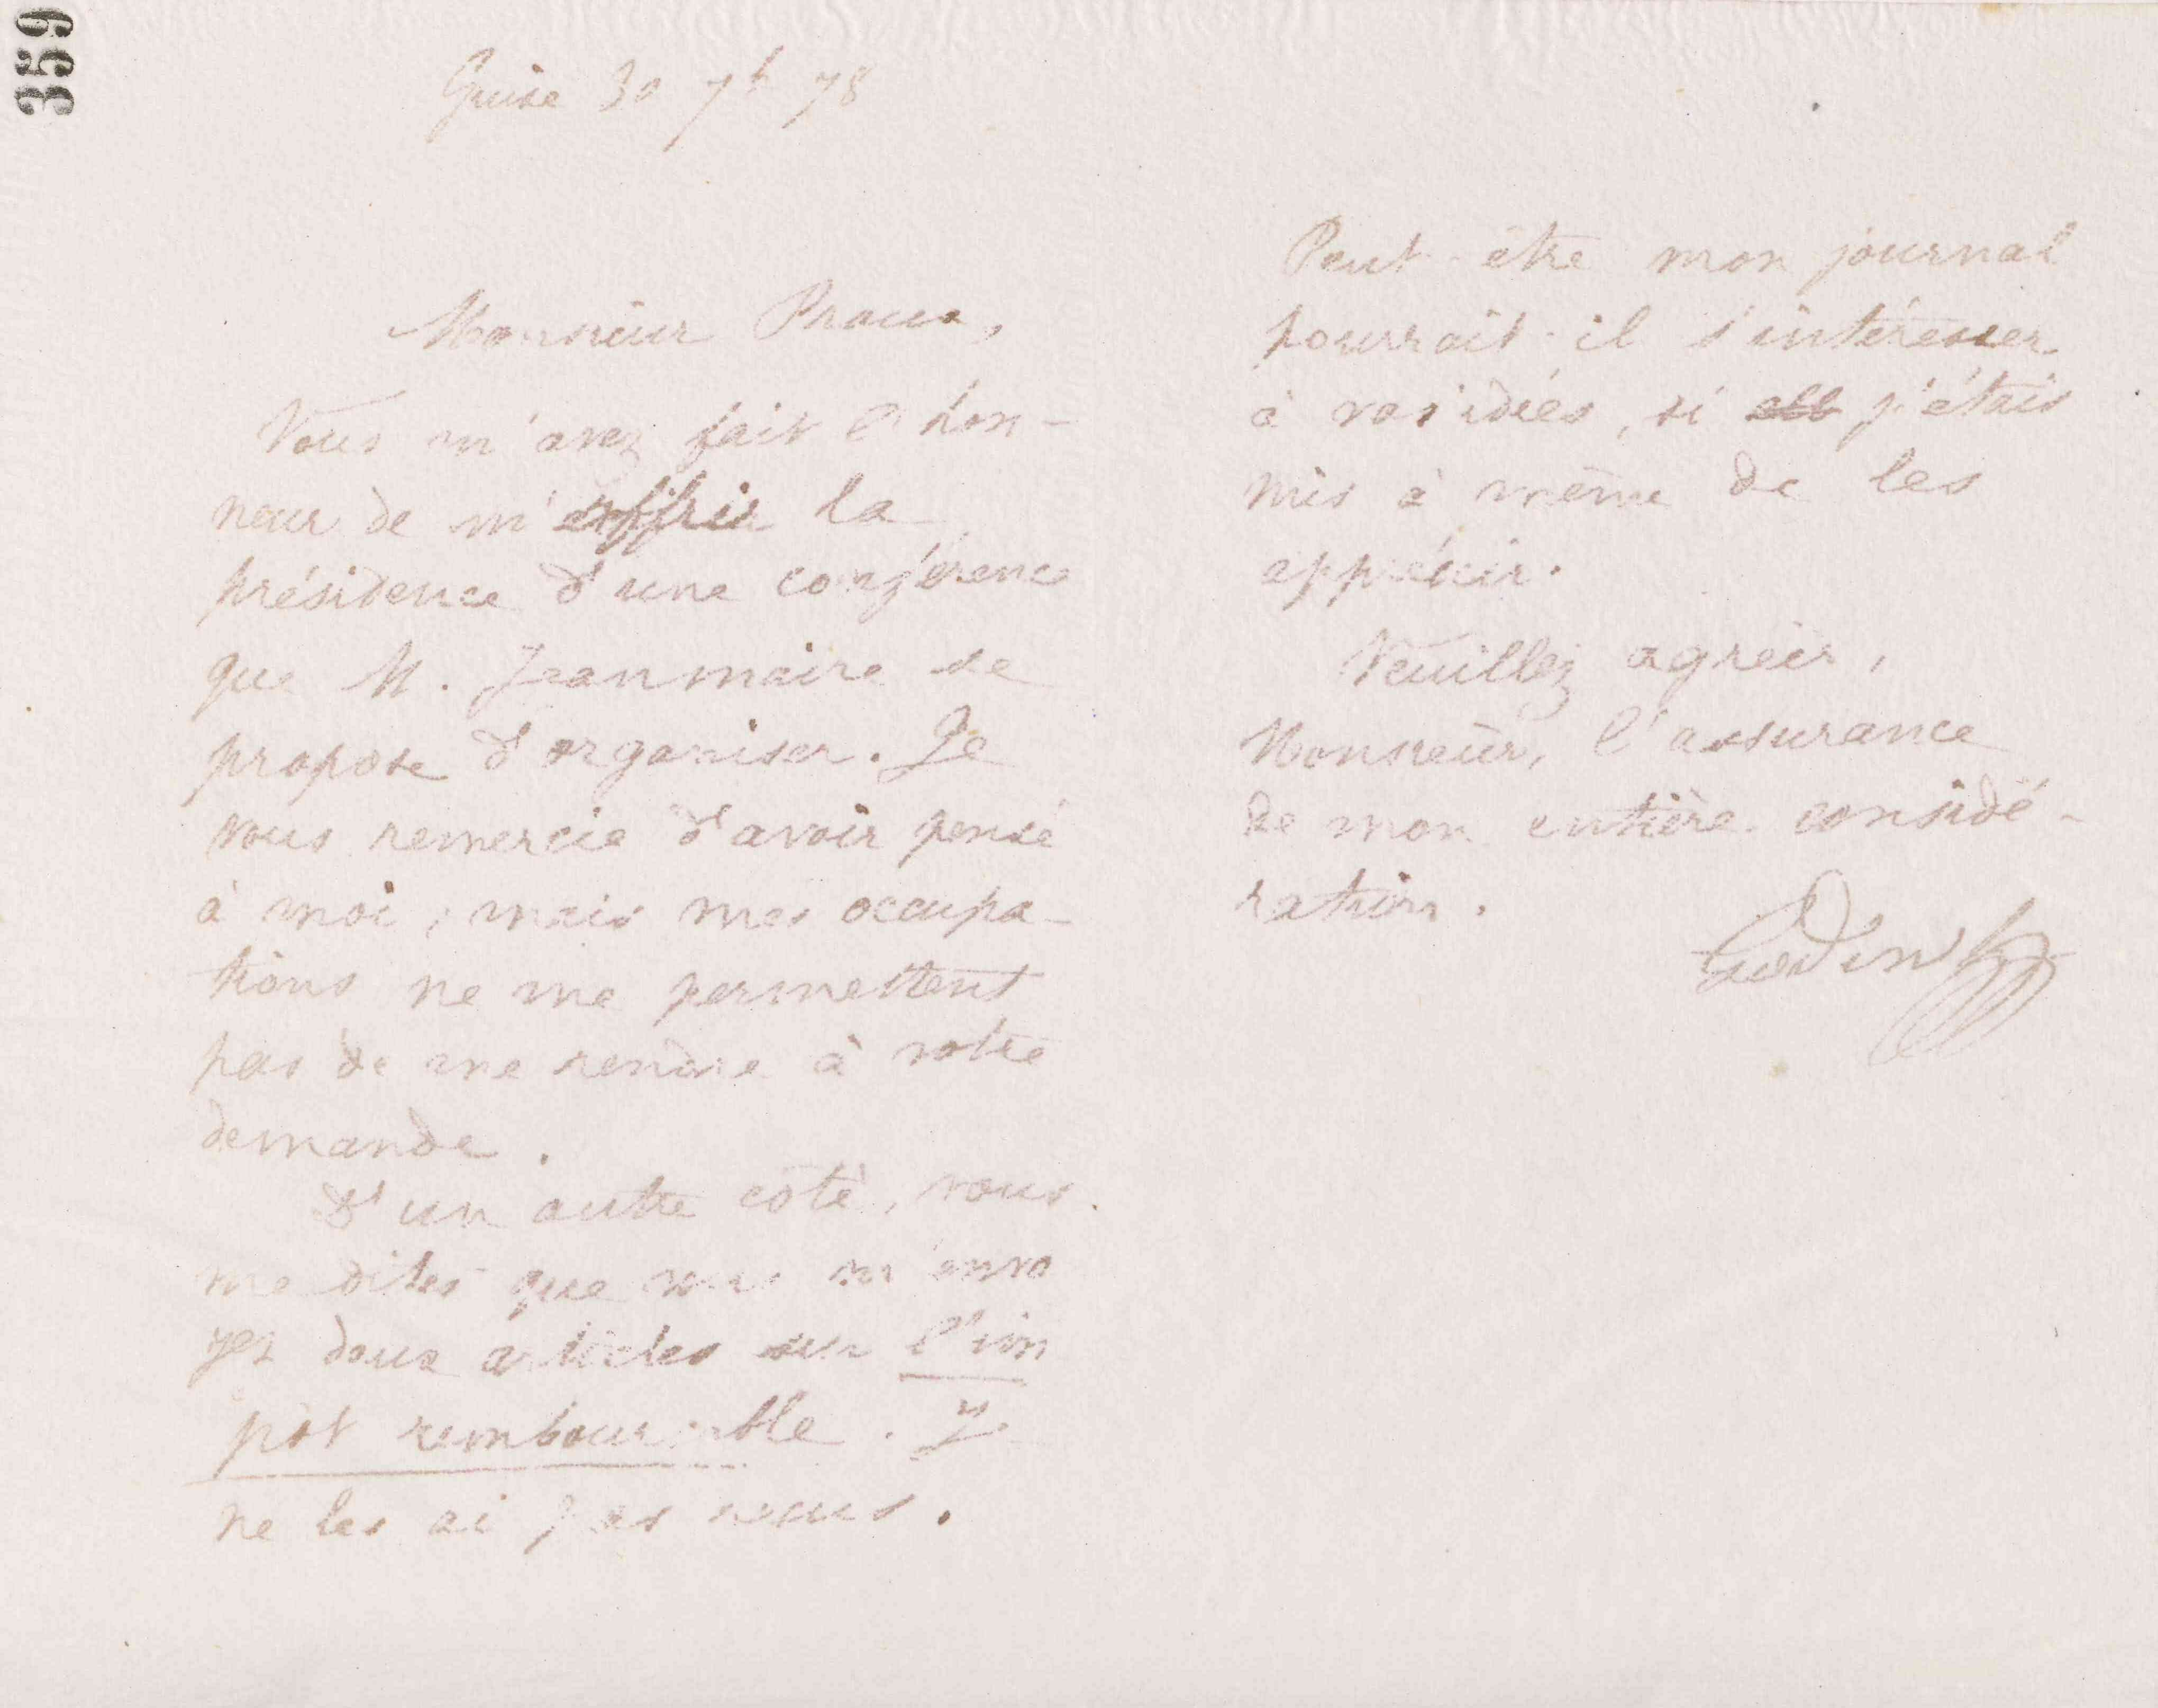 359
Guise 30 7b 78
Monsieur Proux,
Vous m'avez fait l'hon-
neur de m'offrir la
présidence d'une conférence
que M. Jeanmaire se
propose d'organiser. Je
vous remercie d'avoir pensé
à moi, mais mes occupa-
tions ne me permettent
pas de me rendre à votre
demande.
D'un autre côté, vous
me dites que vous m'envo
yez deux articles sur l'im
pôt remboursable. Je
ne les ai pas reçus.
Peut-être mon journal
pourrait-il s'intéresser
à vos idées, si j'étais
mis à même de les
apprécier.
Veuillez agréer,
Monsieur, l'assurance
de mon entière considé-
ration.
Godin